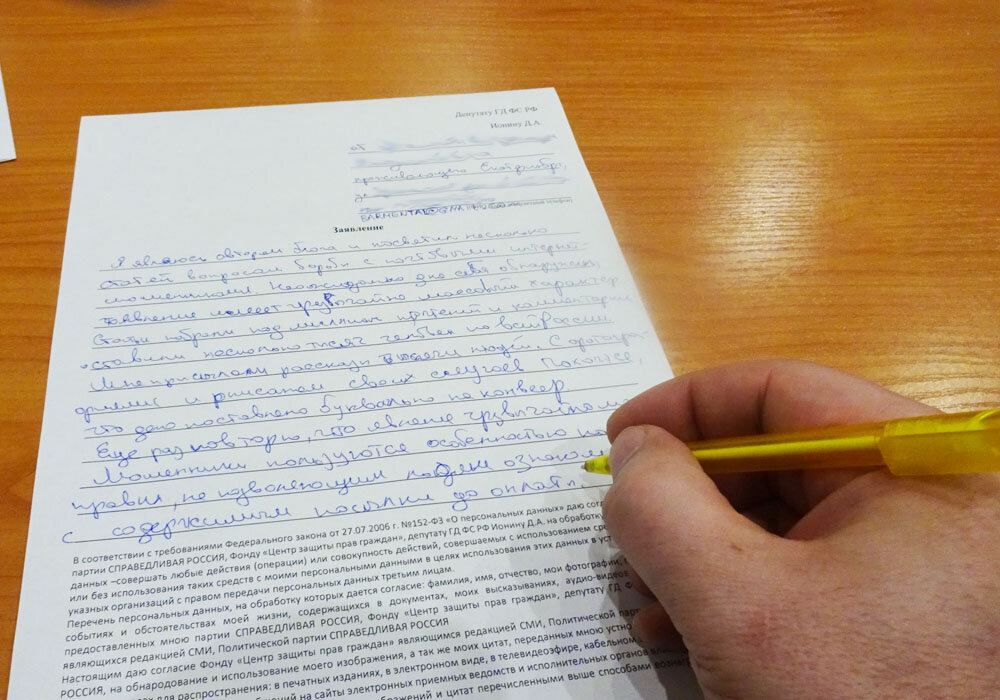 Депутату ГД ФС РФ
Ионину Д.А.
от
проживающего Екатеринбург,
Заявление
Я являюсь автором блога и посвятил несколько
статей вопросам борьбы с почтовыми интернет-
мошенниками Неожиданно для себя обнаружил,
явление имеет чрезвычайно массовый характер
Статьи набрали под миллион прочтений и комментарии
оставили несколько тысяч человек по всей России
Мне присылали рассказы тысячи людей. С фотогра-
фиями и описанием своих случаев Похоже,
что дело поставлено буквально на конвеер
Еще раз повторю, что явление чрезвычайно
Мошенники пользуются особенностью
правил, не позволяющим людям ознаком
с содержимым посылки до оплаты.
В соответствии с требованиями Федерального закона от 27.07.2006 г. №152-ФЗ «О персональных данных» даю
партии СПРАВЕДЛИВАЯ РОССИЯ, Фонду «Центр защиты прав граждан», депутату ГД ФС РФ Ионину Д.А. на обработку
данных –совершать любые действия (операции) или совокупность действий, совершаемых с использованием
или без использования таких средств с моими персональными данными в целях использования этих данных в
указных организаций с правом передачи персональных данных третьим лицам.
Перечень персональных данных, на обработку которых дается согласие: фамилия, имя, отчество, мои фотографии,
событиях и обстоятельствах моей жизни, содержащихся в документах, моих высказываниях, аудио-видео
предоставленных мною партии СПРАВЕДЛИВАЯ РОССИЯ, Фонду «Центр защиты прав граждан», депутату ГД Ф
являющихся редакцией СМИ, Политической партии СПРАВЕДЛИВАЯ РОССИЯ
Настоящим даю согласие Фонду «Центр защиты прав граждан» являющимся редакцией СМИ, Политической
РОССИЯ, на обнародование и использование моего изображения, а так же моих цитат, переданных мною устно
для распространения: в печатных изданиях, в электронном виде, в телевидеоэфире, кабельном
на сайты электронных приемных ведомств и исполнительных органов
и цитат перечисленными выше способами